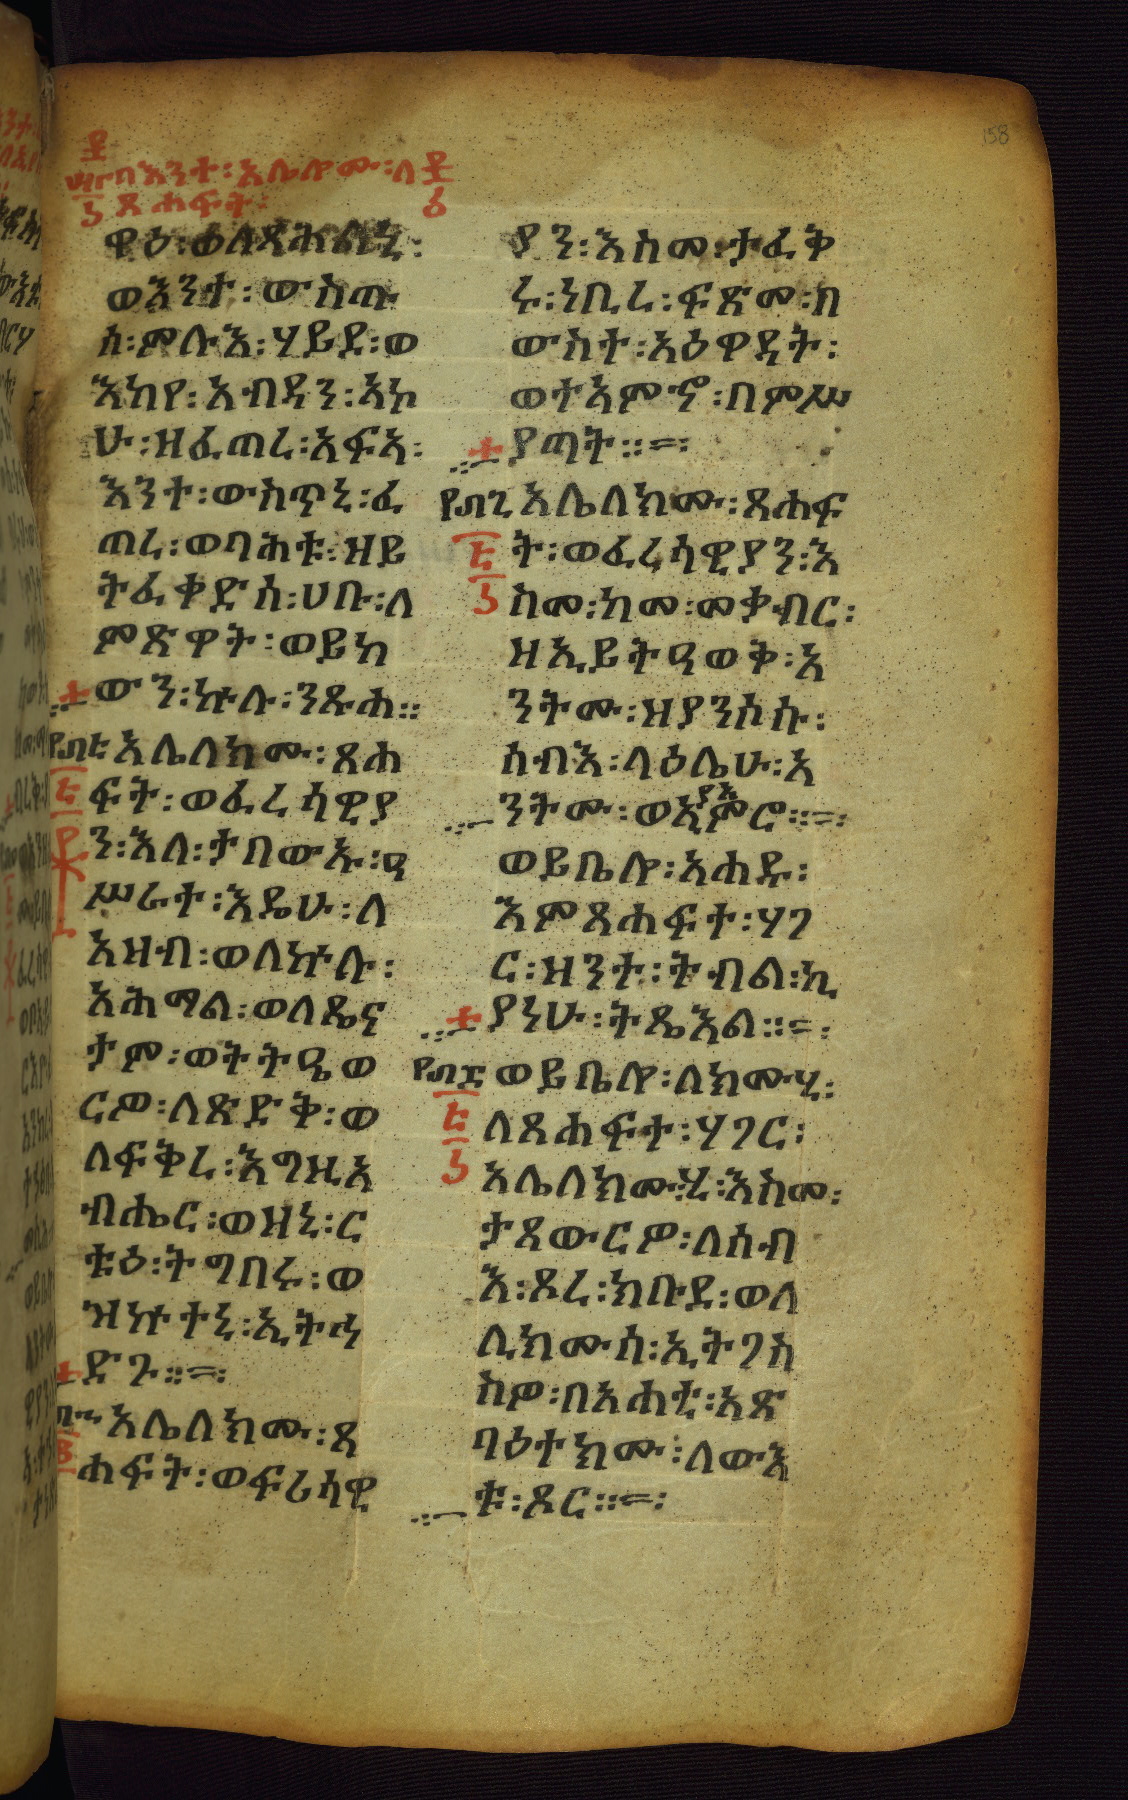 158
በእንተ፡እሌሎሙ፡ለ
ጸሐፍት፡
ዋዕ፡ወለጻሕልኒ፡
ወእንተ፡ውስጡ
ሰ፡ምሉእ፡ሃይደ፡ወ
እከየ፡አብዳን፡አኮ
ሁ፡ዘፈጠረ፡አፍአ፡
እንተ፡ውስጥኒ፡ፈ
ጠረ፡ወባሕቱ፡ዘይ
ትፈቀድሰ፡ሀቡ፡ለ
ምጽዋት፡ወይከ
ውን፡ኵሉ፡ንጹሐ።
አሌለክሙ፡ጸሐ
ፍት፡ወፈሪሳዊያ
ን፡እለ፡ታበውኡ፡ዓ
ሥራተ፡እዴሁ፡ለ
አዝብ፡ወለኵሉ፡
አሕማል፡ወለጼና
ታም፡ወትትዔወ
ርዎ፡ለጽድቅ፡ወ
ለፍቅረ፡እግዚአ
ብሔር፡ወዝኒ፡ር
ቱዕ፡ትግበሩ፡ወ
ዝኵተኒ፡ኢትኅ
ድጉ።
አሌለክሙ፡ጸ
ሐፍት፡ወፍሪሳዊ
ያን፡እስመ፡ታፈቅ
ሩ፡ነቢረ፡ፍጽመ፡በ
ውስተ፡አዕዋዳት፡
ወተአምኆ፡በምሥ
ያጣት።
አሌለክሙ፡ጸሐፍ
ት፡ወፈሪሳዊያን፡እ
ስመ፡ከመ፡መቃብር፡
ዘኢይትዓወቅ፡አ
ንትሙ፡ዝያንሶሱ፡
ሰብእ፡ላዕሌሁ፡አ
ንትሙ፡ወኢያአምሮ።
ወይቤሎ፡አሐዱ፡
እምጸሐፍተ፡ሃገ
ር፡ዝንተ፡ትብል፡ኪ
ያነሁ፡ትጼእል።
ወይቤሎ፡ለክሙሂ፡
ለጸሐፍተ፡ሃገር፡
አሌለክሙሂ፡እስመ፡
ታጸውርዎ፡ለሰብ
እ፡ጾረ፡ክቡደ፡ወለ
ሊክሙሰ፡ኢትገስ
ስዎ፡በአሐቲ፡አጽ
ባዕተክሙ፡ለውእ
ቱ፡ጾር።